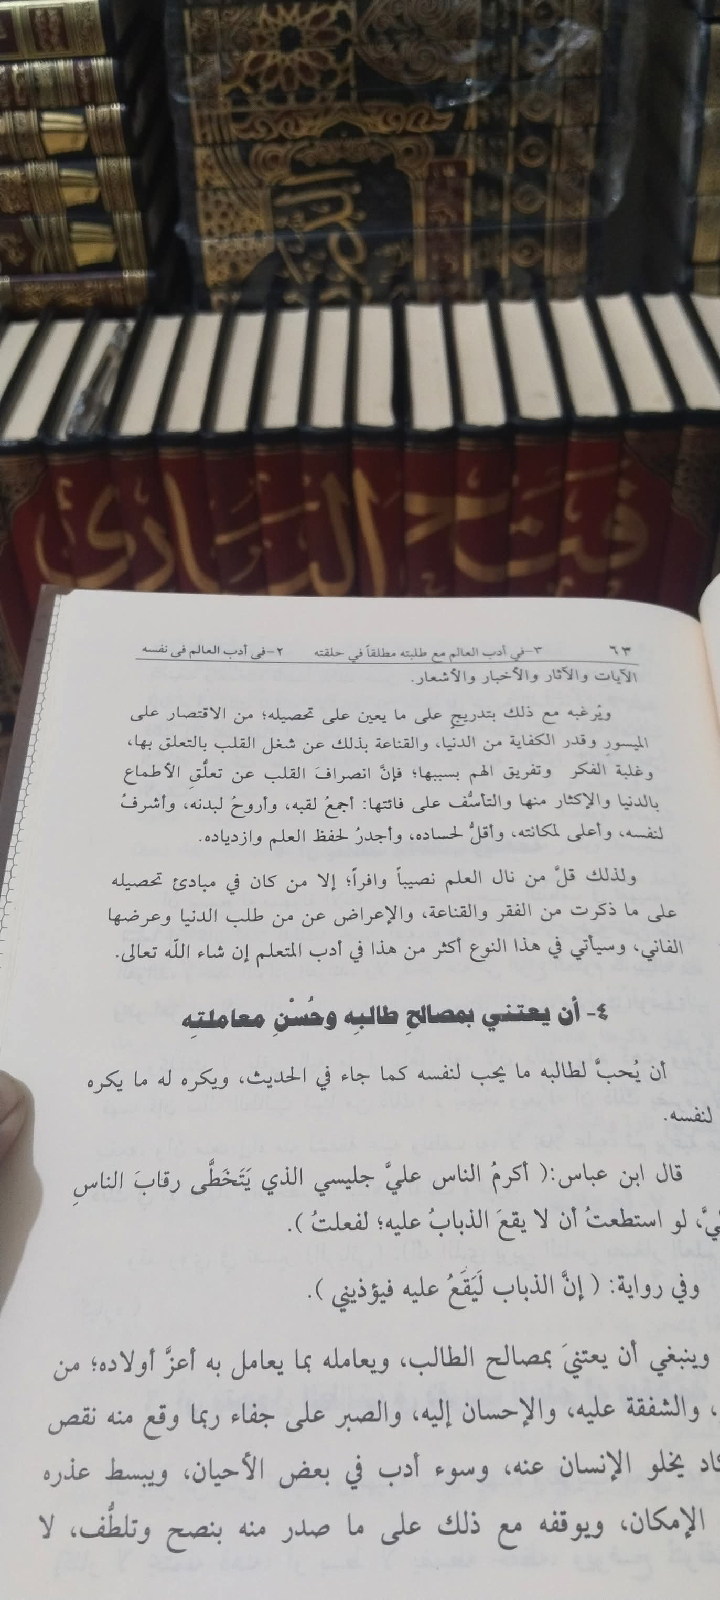 فتح الباري
٦٣ ٣-في أدب العالم مع طلبته مطلقاً في حلقته ٢-في أدب العالم في نفسه
الآيات والآثار والأخبار والأشعار.
ويُرغبه مع ذلك بتدريجٍ على ما يعين على تحصيله؛ من الاقتصار على
الميسورِ وقدر الكفاية من الدنيا، والقناعة بذلك عن شغل القلب بالتعلق بها،
وغلبة الفكر وتفريق الهم بسببها؛ فإنَّ انصرافَ القلب عن تعلُّقِ الأطماع
بالدنيا والإكثار منها والتأسُّف على فائتها: أجمعُ لقبه، وأروحُ لبدنه، وأشرفُ
لنفسه، وأعلى لمكانته، وأقلُّ لحساده، وأجدرُ لحفظ العلم وازدياده.
ولذلك قلَّ من نال العلم نصيباً وافراً؛ إلا من كان في مبادئ تحصيله
على ما ذكرت من الفقر والقناعة، والإعراض عن من طلب الدنيا وعرضها
الفاني، وسيأتي في هذا النوع أكثر من هذا في أدب المتعلم إن شاء اللّه تعالى.
٤- أن يعتني بمصالحِ طالبِه وحُسْنِ معاملتِهِ
أن يُحبَّ لطالبه ما يحب لنفسه كما جاء في الحديث، ويكره له ما يكره
لنفسه.
قال ابن عباس:( أكرمُ الناس عليَّ جليسي الذي يَتَخَطَّى رقابَ الناسِ
لو استطعتُ أن لا يقعَ الذبابُ عليه؛ لفعلتُ ).
وفي رواية: ( إنَّ الذباب لَيَقَعُ عليه فيؤذيني ).
وينبغي أن يعتنيَ بمصالح الطالب، ويعامله بما يعامل به أعزَّ أولاده؛ من
، والشفقة عليه، والإحسان إليه، والصبر على جفاء ربما وقع منه نقص
يخلو الإنسان عنه، وسوء أدب في بعض الأحيان، ويبسط عذره
الإمكان، ويوقفه مع ذلك على ما صدر منه بنصح وتلطُّف، لا